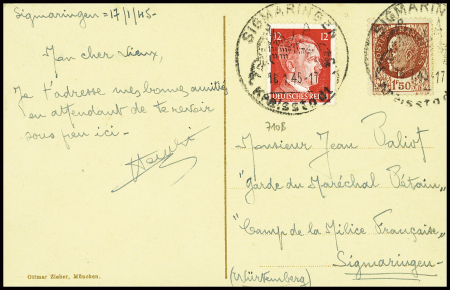 Sigmaringen = 17/1/45 -
Mon cher vieux,
Je t'adresse mes bonnes amitiés
en attendant de te revoir
sous peu ici -
Ottmar Zieher, München.
SIGMARINGEN
12 12
DEUTSCHES REICH
.1.45-17
Kreisstadt
SIGMARINGEN
1F50
-17
Kreisstadt
710B
Monsieur Jean
"Garde du Maréchal Pétain"
"Camp de la Milice Française"
Sigmaringen -
(Württemberg)